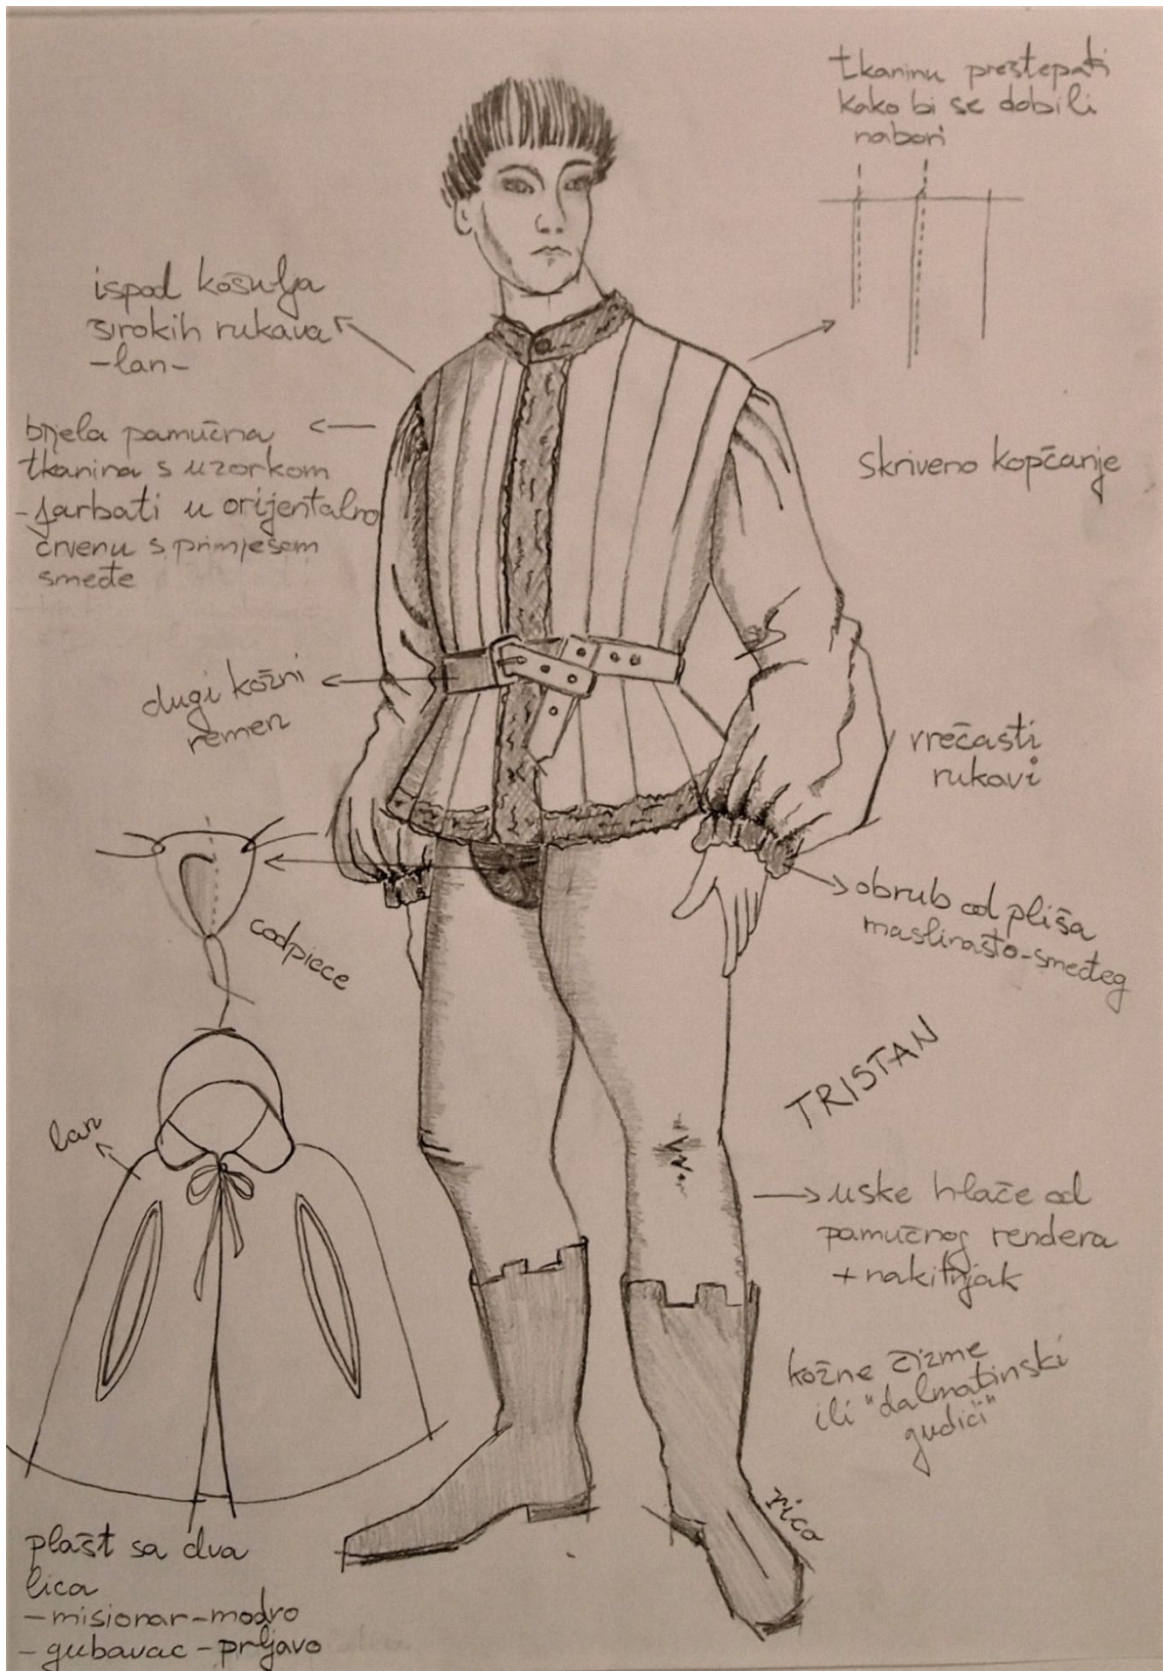 tkaninu preštepati
kako bi se dobili
nabori
ispod košulja
širokih rukava
-lan-
bijela pamučna
tkanina s uzorkom
- farbati u orijentalno
crvenu s primjesom
smeđe
skriveno kopčanje
dugi kožni
remen
vrećasti
rukavi
codpiece
obrub od pliša
maslinasto-smeđeg
TRISTAN
lan
uske hlače od
pamučnog rendera
+ nakitnjak
kožne čizme
ili "dalmatinski
gudići"
plašt sa dva
lica
- misionar - modro
- gubavac - prljavo